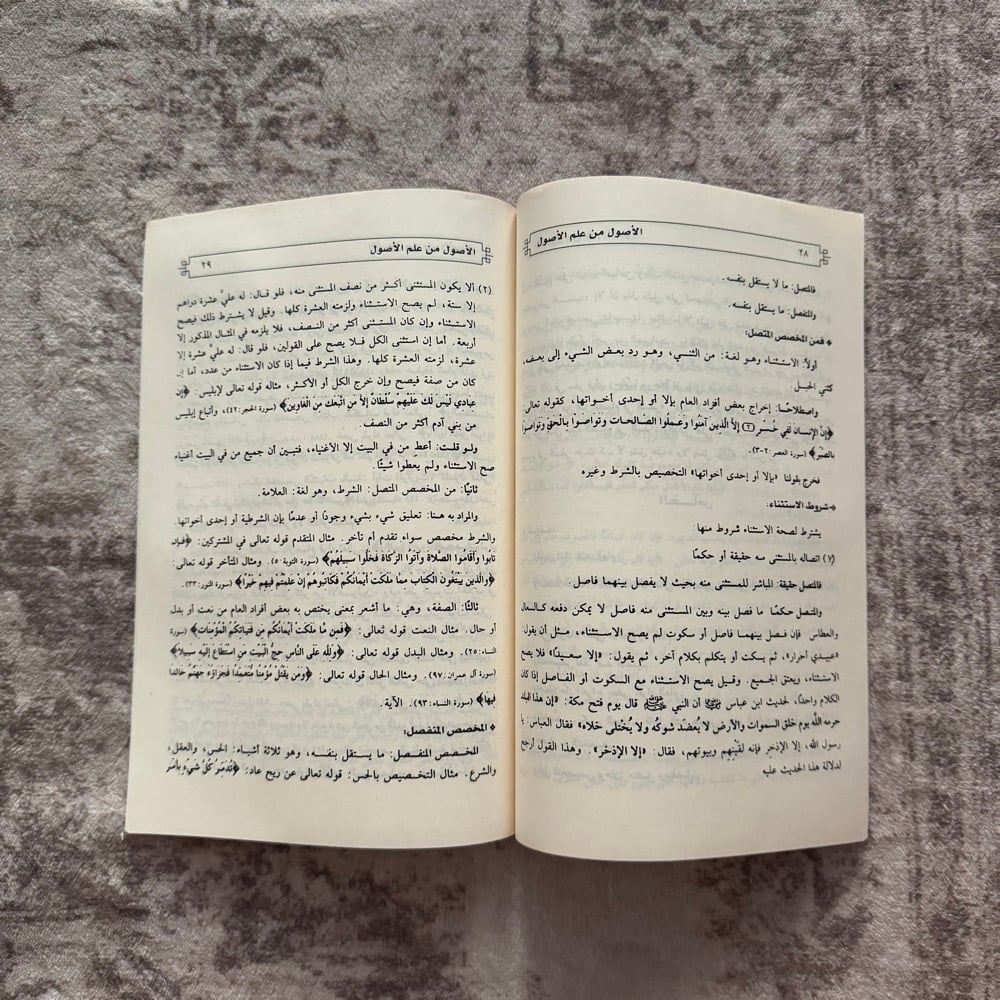 الأصول من علم الأصول
٢٨
فالمتصل: ما لا يستقل بنفسه.
والمنفصل: ما يستقل بنفسه.
* فمن المخصص المتصل:
أولاً: الاستثناء وهو لغة: من الثني، وهو رد بعض الشيء إلى بعضه،
كثني الحبل.
واصطلاحًا: إخراج بعض أفراد العام بإلا أو إحدى أخواتها، كقوله تعالى:
﴿إِنَّ الإِنسَانَ لَفِي خُسْرٍ (٢) إِلاَّ الَّذِينَ آمَنُوا وَعَمِلُوا الصَّالِحَاتِ وَتَوَاصَوْا بِالْحَقِّ وَتَوَاصَوْا
بِالصَّبْرِ﴾ (سورة العصر: ٢-٣).
فخرج بقولنا «بإلا أو إحدى أخواتها» التخصيص بالشرط وغيره
* شروط الاستثناء:
يشترط لصحة الاستثناء شروط منها:
(١) اتصاله بالمستثنى منه حقيقة أو حكمًا
فالمتصل حقيقة: المباشر للمستثنى منه بحيث لا يفصل بينهما فاصل.
والمتصل حكمًا ما فصل بينه وبين المستثنى منه فاصل لا يمكن دفعه كالسعال
والعطاس فإن فصل بينهما فاصل أو سكوت لم يصح الاستثناء، مثل أن يقول:
«عبيدي أحرار»، ثم يسكت أو يتكلم بكلام آخر، ثم يقول: «إلا سعيدًا» فلا يصح
الاستثناء، ويعتق الجميع. وقيل يصح الاستثناء مع السكوت أو الفاصل إذا كان
الكلام واحدًا، لحديث ابن عباس أن النبي ﷺ قال يوم فتح مكة: «إن هذا البلد
حرمه اللَّه يوم خلق السموات والأرض لا يُعضَد شوكُه ولا يُختلى خلاه» فقال العباس: يا
رسول الله، إلا الإذخر فإنه لقَيْنِهم وبيوتهم، فقال: «إلا الإذخر». وهذا القول أرجح
لدلالة هذا الحديث عليه
الأصول من علم الأصول
٢٩
(٢) ألا يكون المستثنى أكثر من نصف المستثنى منه، فلو قال: له عليَّ عشرة دراهم
إلا ستة، لم يصح الاستثناء ولزمته العشرة كلها. وقيل لا يشترط ذلك فيصح
الاستثناء وإن كان المستثنى أكثر من النصف، فلا يلزمه في المثال المذكور إلا
أربعة. أما إن استثنى الكل فلا يصح على القولين، فلو قال: له عليَّ عشرة إلا
عشرة، لزمته العشرة كلها. وهذا الشرط فيما إذا كان الاستثناء من عدد، أما إن
كان من صفة فيصح وإن خرج الكل أو الأكثر، مثاله قوله تعالى لإبليس: ﴿إِنَّ
عِبَادِي لَيْسَ لَكَ عَلَيْهِمْ سُلْطَانٌ إِلاَّ مَنِ اتَّبَعَكَ مِنَ الْغَاوِينَ﴾ (سورة الحجر: ٤٢)، وأتباع إبليس
من بني آدم أكثر من النصف.
ولو قلت: أعطِ من في البيت إلا الأغنياء، فتبين أن جميع من في البيت أغنياء
صح الاستثناء ولم يعطوا شيئًا.
ثانيًا: من المخصص المتصل: الشرط، وهو لغة: العلامة.
والمراد به هنا: تعليق شيء بشيء وجودًا أو عدمًا بإن الشرطية أو إحدى أخواتها.
والشرط مخصص سواء تقدم أم تأخر. مثال المتقدم قوله تعالى في المشركين: ﴿فَإِن
تَابُوا وَأَقَامُوا الصَّلاةَ وَآتَوُا الزَّكَاةَ فَخَلُّوا سَبِيلَهُمْ﴾ (سورة التوبة: ٥). ومثال المتأخر قوله تعالى:
﴿وَالَّذِينَ يَبْتَغُونَ الْكِتَابَ مِمَّا مَلَكَتْ أَيْمَانُكُمْ فَكَاتِبُوهُمْ إِنْ عَلِمْتُمْ فِيهِمْ خَيْرًا﴾ (سورة النور: ٣٣).
ثالثًا: الصفة، وهي: ما أشعر بمعنى يختص به بعض أفراد العام من نعت أو بدل
أو حال. مثال النعت قوله تعالى: ﴿فَمِن مَّا مَلَكَتْ أَيْمَانُكُم مِّن فَتَيَاتِكُمُ الْمُؤْمِنَاتِ﴾ (سورة
النساء: ٢٥). ومثال البدل قوله تعالى: ﴿وَلِلَّهِ عَلَى النَّاسِ حِجُّ الْبَيْتِ مَنِ اسْتَطَاعَ إِلَيْهِ سَبِيلاً﴾
(سورة آل عمران: ٩٧). ومثال الحال قوله تعالى: ﴿وَمَن يَقْتُلْ مُؤْمِنًا مُّتَعَمِّدًا فَجَزَاؤُهُ جَهَنَّمُ خَالِدًا
فِيهَا﴾ (سورة النساء: ٩٣). الآية.
* المخصص المنفصل:
المخصص المنفصل: ما يستقل بنفسه، وهو ثلاثة أشياء: الحس، والعقل،
والشرع. مثال التخصيص بالحس: قوله تعالى عن ريح عاد: ﴿تُدَمِّرُ كُلَّ شَيْءٍ بِأَمْرِ